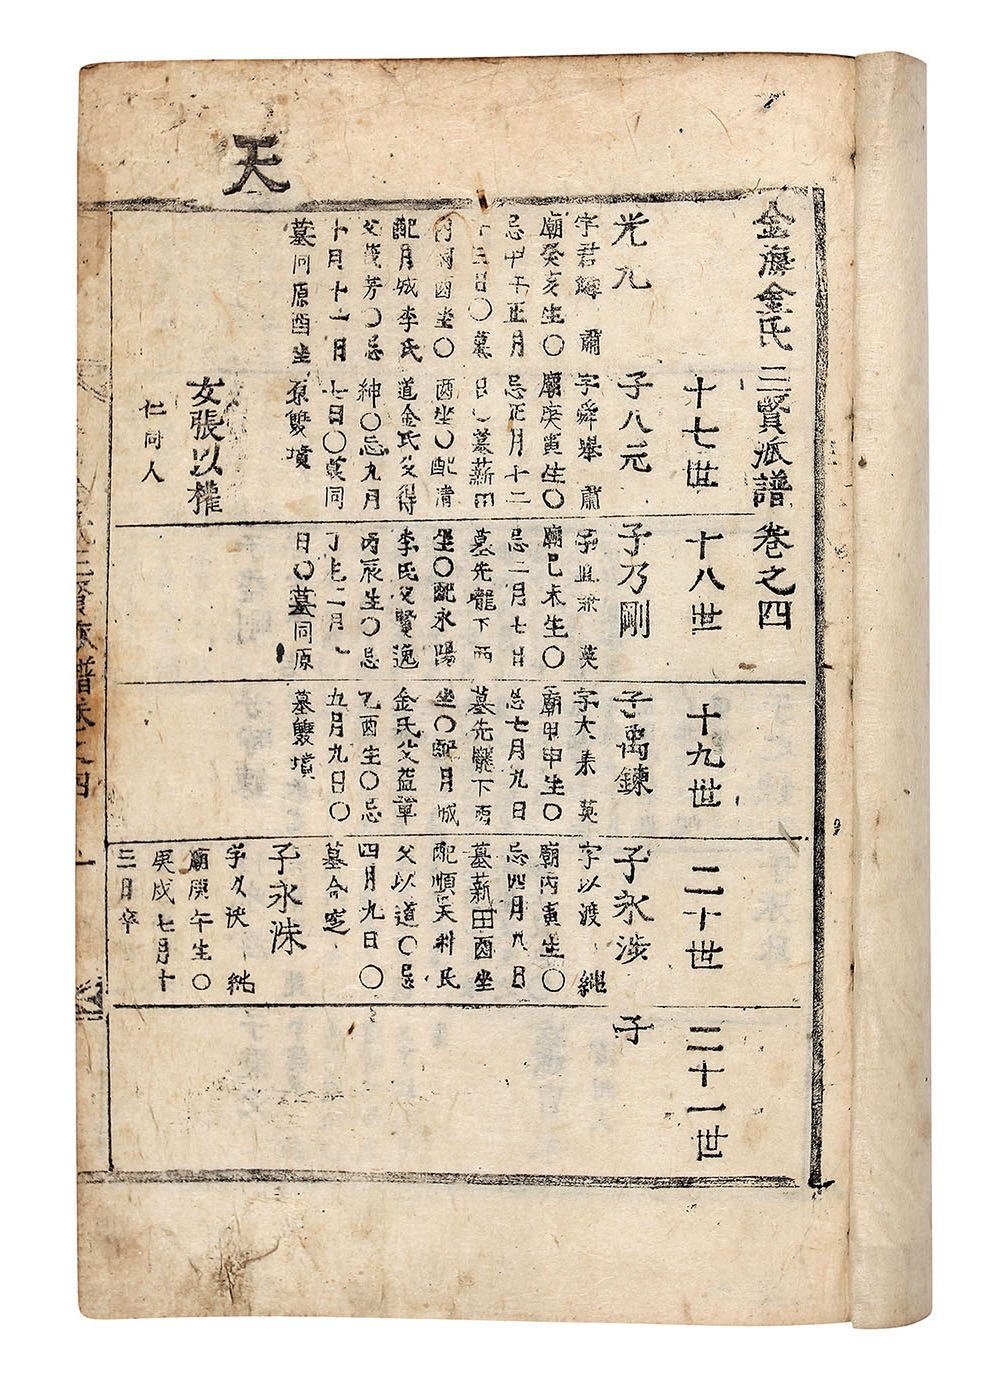 天
金海金氏三賢派譜卷之四
十七世
十八世
十九世
二十世
二十一世
光九
字君 肅
廟癸亥生〇
忌甲午正月
十三日〇墓
酉坐〇
配月城李氏
父茂芳〇忌
十月十一日
墓同原酉坐
子八元
字舜舉 肅
廟庚寅生〇
忌正月十二
日〇墓薪田
酉坐〇配清
道金氏父得
紳〇忌九月
七日〇墓同
原雙墳
女張以權
仁同人
子乃剛
英
廟己未生〇
忌二月七日
墓先壠下酉
坐〇配永陽
李氏父賢逸
丙辰生〇忌
丁亡二月
日〇墓同原
子禹鍊
字大來 英
廟甲申生〇
忌七月九日
墓先壠下酉
坐〇配月城
金氏父益華
乙酉生〇忌
五月九日〇
墓雙墳
子永涉
字以渡 純
廟丙寅生〇
忌四月九日
墓薪田酉坐
配順天朴氏
父以道〇忌
四月九日〇
墓合窆
子永洙
純
廟庚午生〇
庚戌七月十
三日卒
子